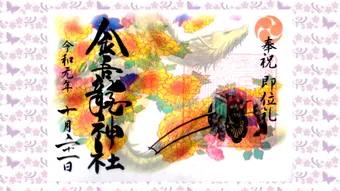 奉祝 即位礼
金吾龍神社
令和元年 十月二十二日